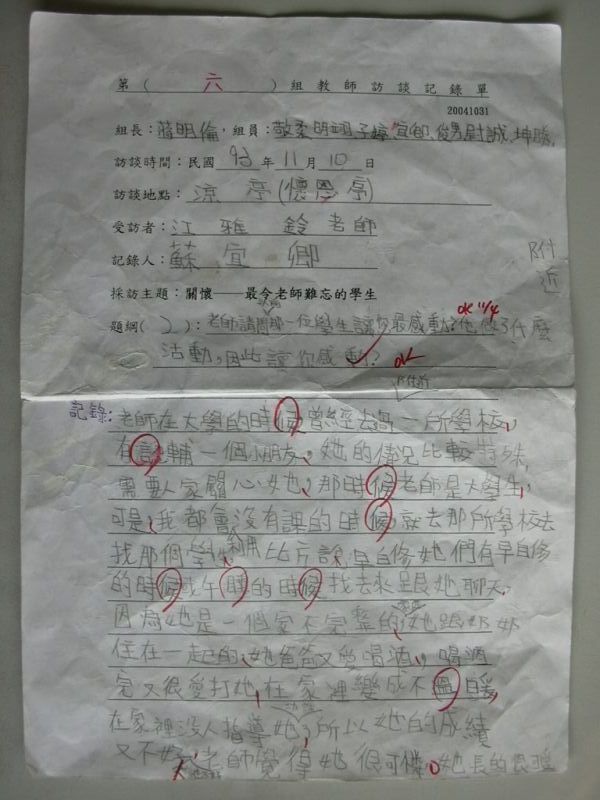 第(六)組教師訪談記錄單
20041031
組長：蔣明倫，組員：敬柔 明翊 子婷 宜卿 俊男 尉誠 坤勝
訪談時間：民國 93 年 11 月 10 日
訪談地點：涼亭(懷恩亭)
受訪者：江雅鈴老師
記錄人：蘇宜卿
附近
採訪主題：關懷——最令老師難忘的學生
ok 11/4
題綱(2)：老師請問那一位學生讓你最感動？他做了什麼
活動，因此讓你感動？ ok
附近
記錄：老師在大學的時候曾經去過一所學校，
有認輔一個小朋友，她的情況比較特殊，
需要人家關心她，那時候老師是大學生，
可是，我都會沒有課的時候就去那所學校去
找那個學生利用比方說，早自修她們有早自修
的時候或午睡的時候找去來跟她聊天，
因為她是一個家不完整的，她跟奶奶
住在一起的，她爸爸又愛喝酒，喝酒
完又很愛打她，在家裡變成不溫暖，
在家裡沒人指導她，所以她的成績
又不好，老師覺得她很可憐，她長的很